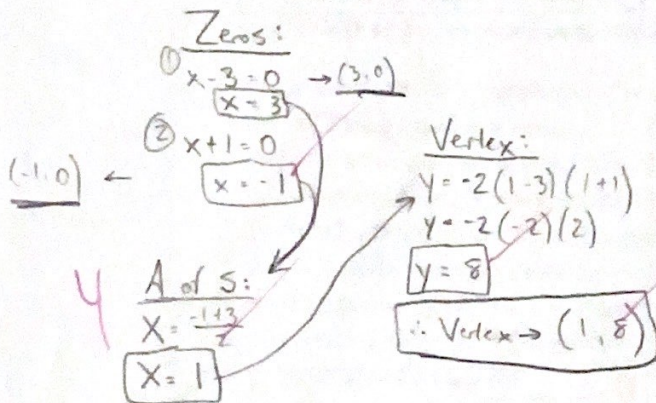 Zeros:
① x - 3 = 0 → (3, 0)
x = 3
② x + 1 = 0
(-1, 0) ← x = -1
A of S:
X = (-1+3)/2
X = 1
4
Vertex:
y = -2(1-3)(1+1)
y = -2(-2)(2)
y = 8
∴ Vertex → (1, 8)